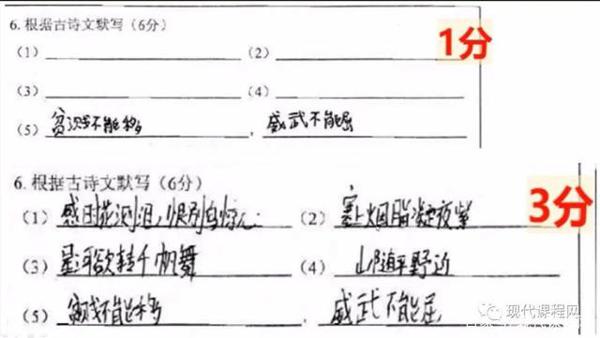 6. 根据古诗文默写（6分） 1分
（1） （2）
（3） （4）
（5） 不能移 ， 武不能屈
6. 根据古诗文默写（6分） 3分
（1） 感 花 泪，恨别鸟惊心 （2） 塞上烟脂凝夜紫
（3） 星河欲转千帆舞 （4） 山随平野近
（5） 不能移 ， 威武不能屈
现代课程网